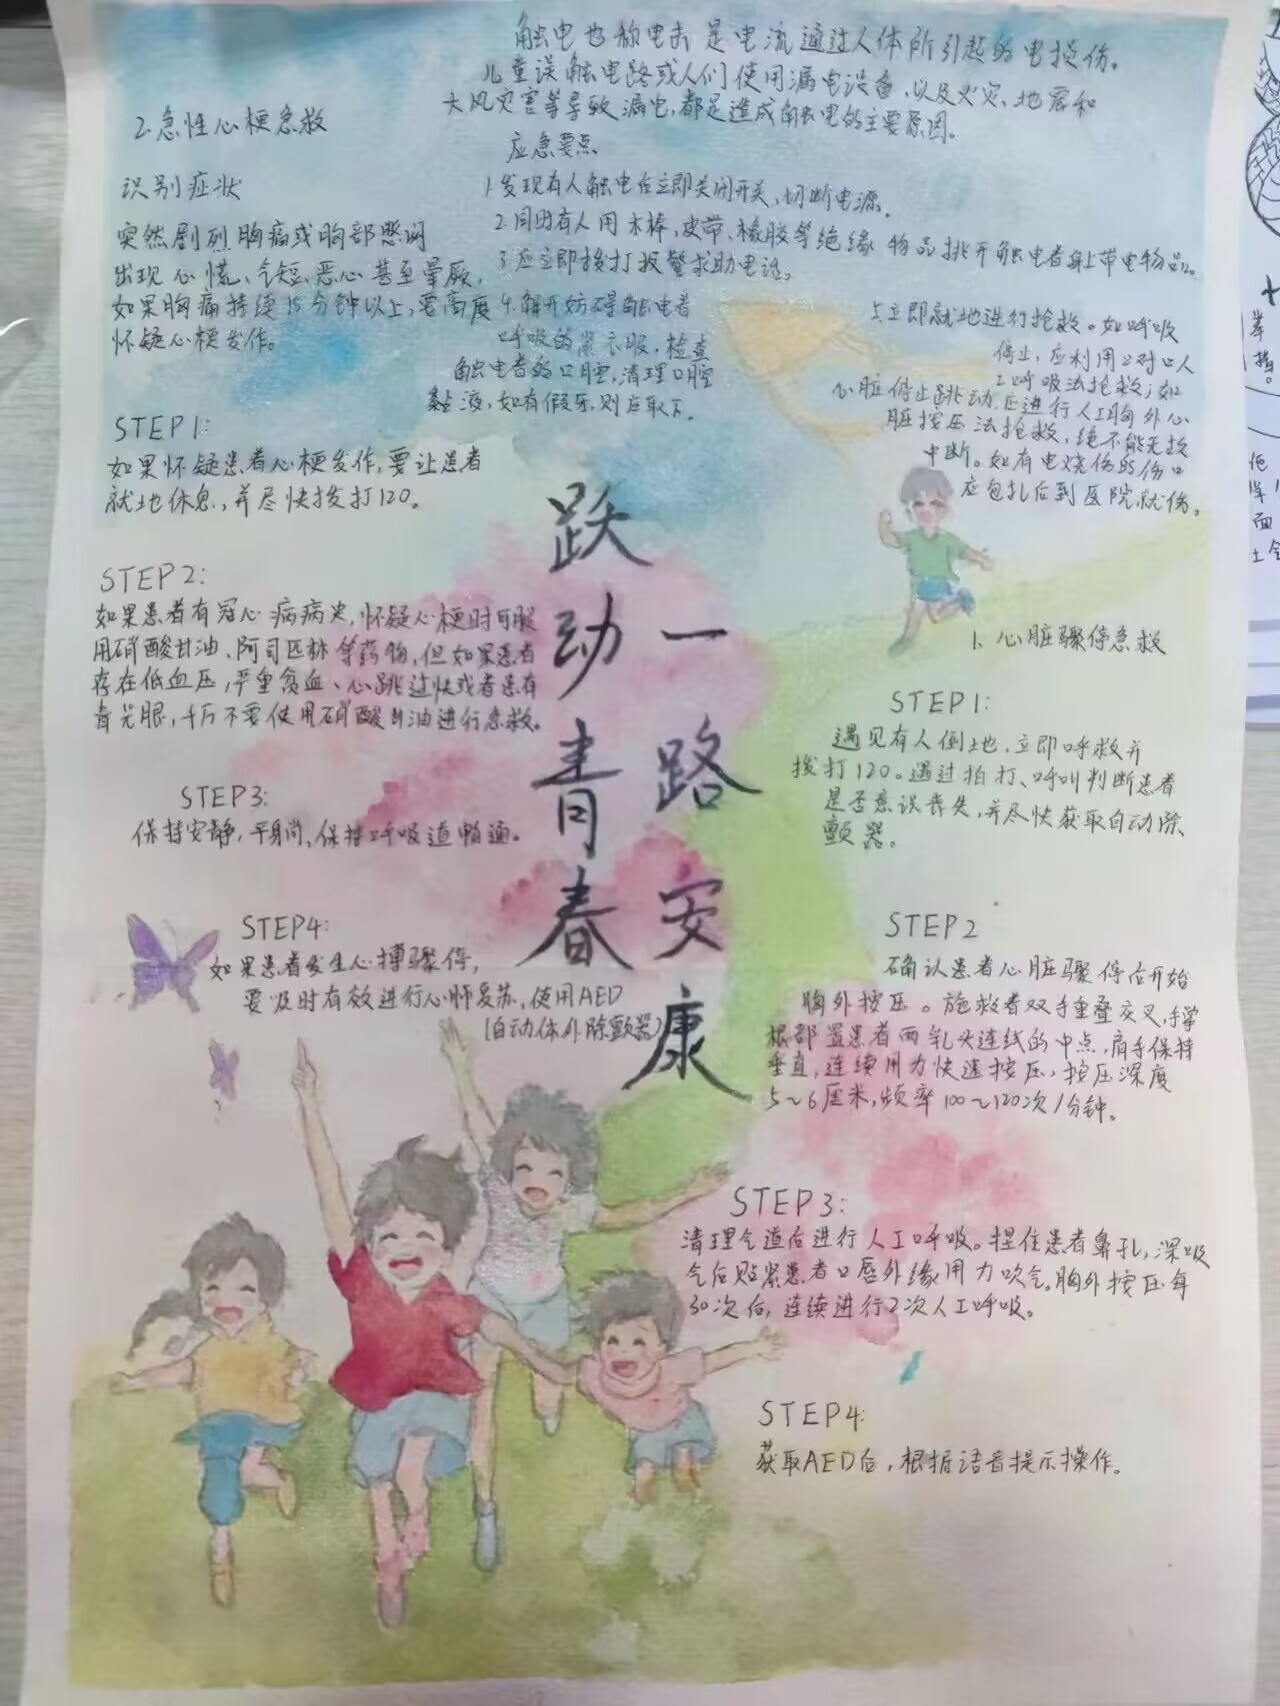 触电也称电击是电流通过人体所引起的电损伤。
儿童误触电路或人们使用漏电设备,以及火灾、地震和
大风灾害等导致漏电,都是造成触电的主要原因。
应急要点
1.发现有人触电后立即关闭开关,切断电源。
2.同时有人用木棒、皮带、橡胶等绝缘物品挑开触电者身上带电物品。
3.应立即拨打报警求助电话。
4.解开妨碍触电者
呼吸的紧衣服,检查
触电者的口腔,清理口腔
黏液,如有假牙,则应取下。
5.立即就地进行抢救。如呼吸
停止,应利用口对口人
工呼吸法抢救;如
心脏停止跳动,应进行人工胸外心
脏按压法抢救,绝不能无故
中断。如有电烧伤的伤口
应包扎后到医院就伤。
2.急性心梗急救
识别症状
突然剧烈胸痛或胸部憋闷
出现心慌、气短、恶心甚至晕厥,
如果胸痛持续15分钟以上,要高度
怀疑心梗发作。
STEP1:
如果怀疑患者心梗发作,要让患者
就地休息,并尽快拨打120。
STEP2:
如果患者有冠心病病史,怀疑心梗时可服
用硝酸甘油、阿司匹林等药物,但如果患者
存在低血压,严重贫血、心跳过快或者患有
青光眼,千万不要使用硝酸甘油进行急救。
STEP3:
保持安静,平躺,保持呼吸道畅通。
STEP4:
如果患者发生心搏骤停,
要及时有效进行心肺复苏,使用AED
(自动体外除颤器)
跃动青春
一路安康
1、心脏骤停急救
STEP1:
遇见有人倒地,立即呼救并
拨打120。通过拍打、呼叫判断患者
是否意识丧失,并尽快获取自动除
颤器。
STEP2
确认患者心脏骤停后开始
胸外按压。施救者双手重叠交叉,手掌
根部置患者两乳头连线的中点,肩手保持
垂直,连续用力快速按压,按压深度
5~6厘米,频率100~120次/分钟。
STEP3:
清理气道后进行人工呼吸。捏住患者鼻孔,深吸
气后贴紧患者口唇外缘用力吹气。胸外按压每
30次后,连续进行2次人工呼吸。
STEP4:
获取AED后,根据语音提示操作。